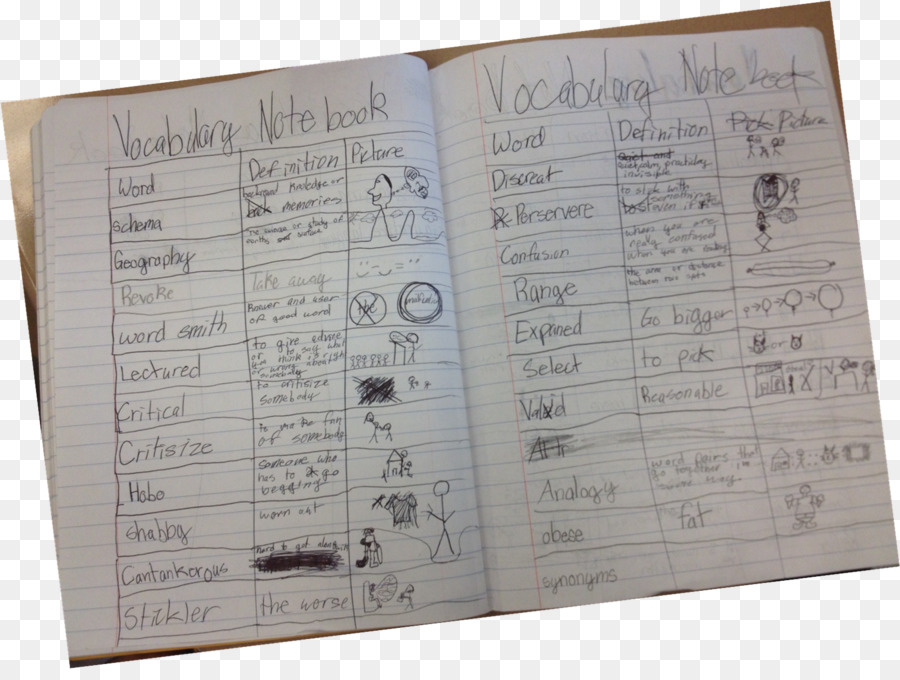 Vocabulary Notebook
Word Definition Picture
Schema background knoledge or memories
Geography the science or study of earths surface
Revoke Take away
word smith Knower and user of good word
Lectured to give advice or to say what you think is right or wrong about somebody
Critical to critisize somebody
Critisize to make fun of somebody
Hobo Someone who has to go begging
Shabby worn out
Cantankorous hard to get along with
Stickler the worse
Vocabulary Notebook
Word Definition Picture
Discreat practicley invisible
Perservere to stick with something even if
Confusion when you are really confused when you are
Range the area or distance between two
Expained Go bigger
Select to pick or
Valid Reasonable
Analogy word pairs that go together in way
obese fat
synonyms